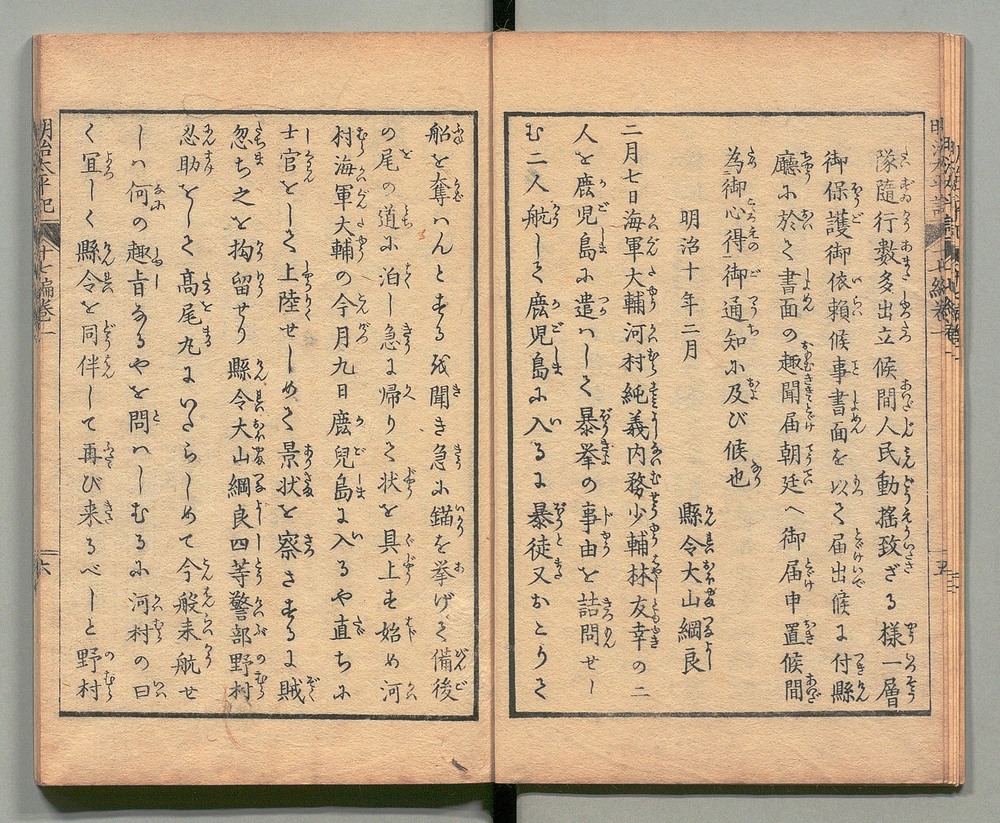 隊隨行数多出立候間人民動搖致ざる様一層
御保護御依頼候事書面を以て届出候に付縣
廳に於て書面の趣聞届朝廷へ御届申置候間
為御心得御通知に及び候也
明治十年二月
縣令大山綱良
二月七日海軍大輔河村純義内務少輔林友幸の二
人を鹿児島に遣ハして暴挙の事由を詰問せし
む二人航して鹿児島に入るに暴徒又おとりて
船を奪ハんとするを聞き急に錨を挙げて備後
の尾の道に泊し急に帰りて状を具上す始め河
村海軍大輔の今月九日鹿兒島に入るや直ちに
士官をして上陸せしめて景状を察さするに賊
忽ち之を拘留せり縣令大山綱良四等警部野村
忍助をして高尾丸にいたらしめて今般来航せ
しハ何の趣旨なるやを問ハしむるに河村の曰
く宜しく縣令を同伴して再び来るべしと野村
明治太平記
十七編巻一
六